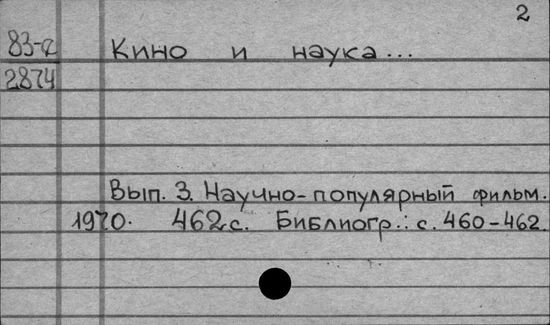 2
83-4 Кино и наука...
2874
Вып. 3. Научно-популярный фильм.
1970. 462с. Библиогр.: с. 460-462.